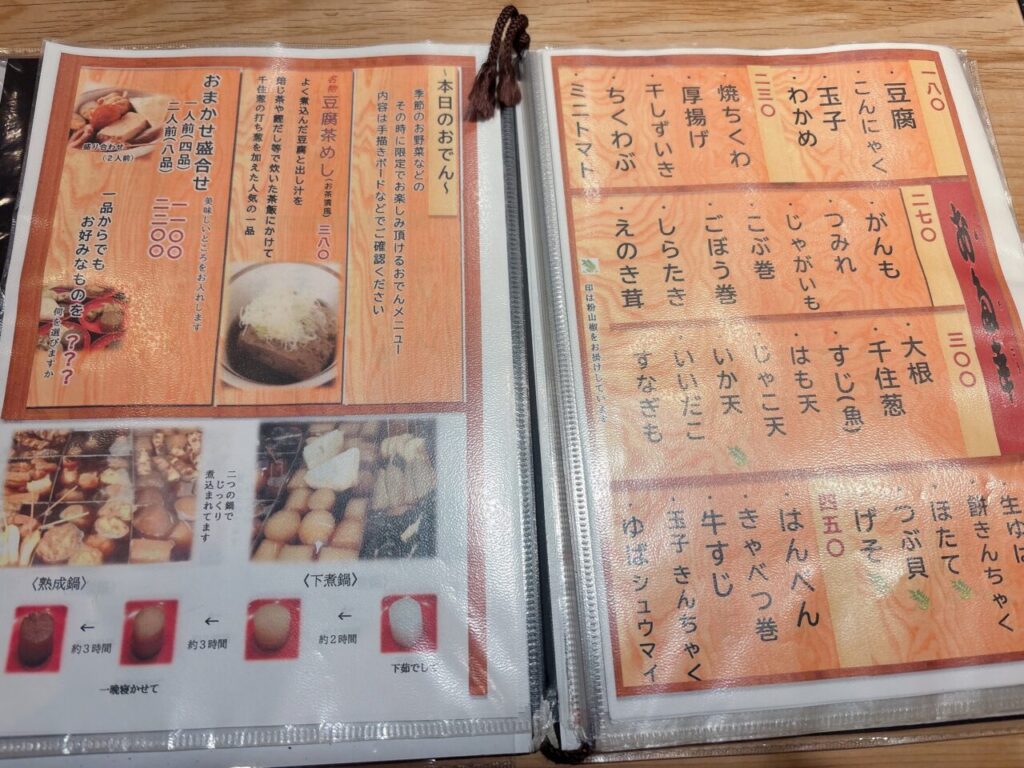 一八〇
・豆腐
・こんにゃく
・玉子
・わかめ
二三〇
・焼ちくわ
・厚揚げ
・干しずいき
・ちくわぶ
・ミニトマト
二七〇
・がんも
・つみれ
・じゃがいも
・こぶ巻
・ごぼう巻
・しらたき
・えのき茸
三〇〇
・大根
・千住葱
・すじ(魚)
・はも天
・じゃこ天
・いか天
・いいだこ
・すなぎも
・生ゆば
・餅きんちゃく
・ほたて
・つぶ貝
・げそ
四五〇
・はんぺん
・きゃべつ巻
・牛すじ
・玉子きんちゃく
・ゆばシュウマイ
印は粉山椒をお掛けしています
～本日のおでん～
季節のお野菜などの
その時に限定でお楽しみ頂けるおでんメニュー
内容は手描きボードなどでご確認ください
名物 豆腐茶めし(お茶漬風) 三八〇
よく煮込んだ豆腐と出し汁を
焙じ茶や鰹だし等で炊いた茶飯にかけて
千住葱の打ち葱を加えた人気の一品
おまかせ盛合せ
美味しいところをお入れします
一人前(四品) 一一〇〇
二人前(八品) 二二〇〇
盛り合わせ
(2人前)
一品からでも
お好みなものを
???
何を選びますか
二つの鍋で
じっくり
煮込まれてます
〈熟成鍋〉
〈下煮鍋〉
下茹でして
←
約2時間
←
約3時間
←
約3時間
一晩寝かせて